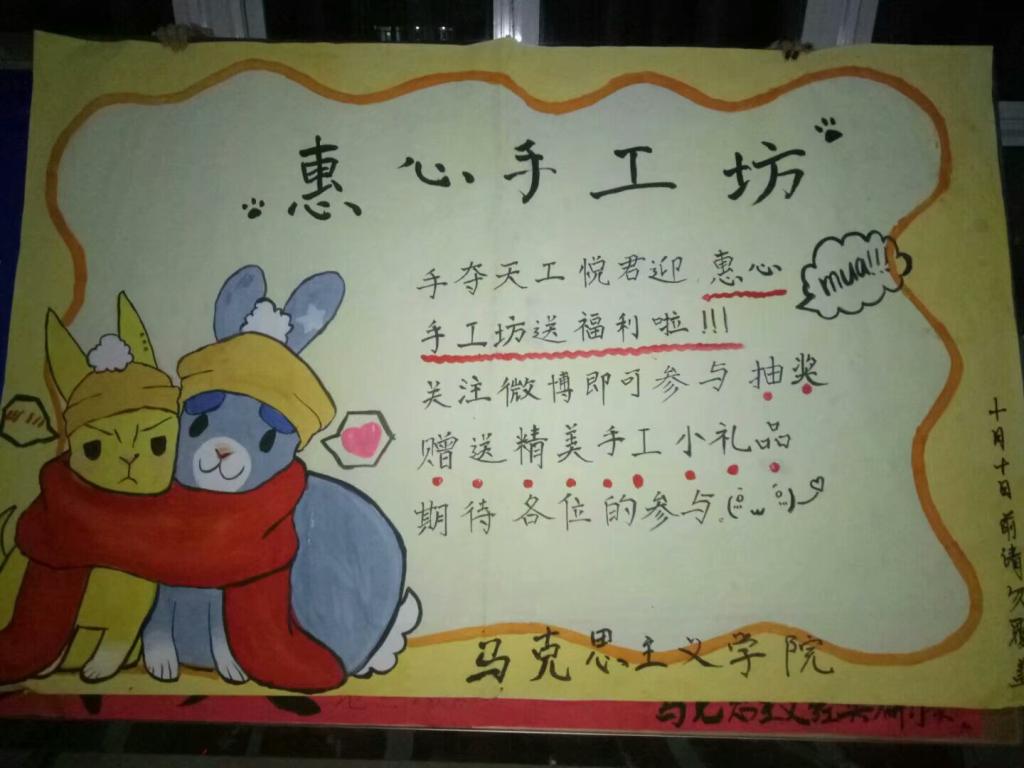 惠心手工坊
手夺天工悦君迎惠心
手工坊送福利啦!!!
关注微博即可参与抽奖
赠送精美手工小礼品
期待各位的参与
mua!!!
马克思主义学院
十月十日前请勿覆盖
马克思主义经典